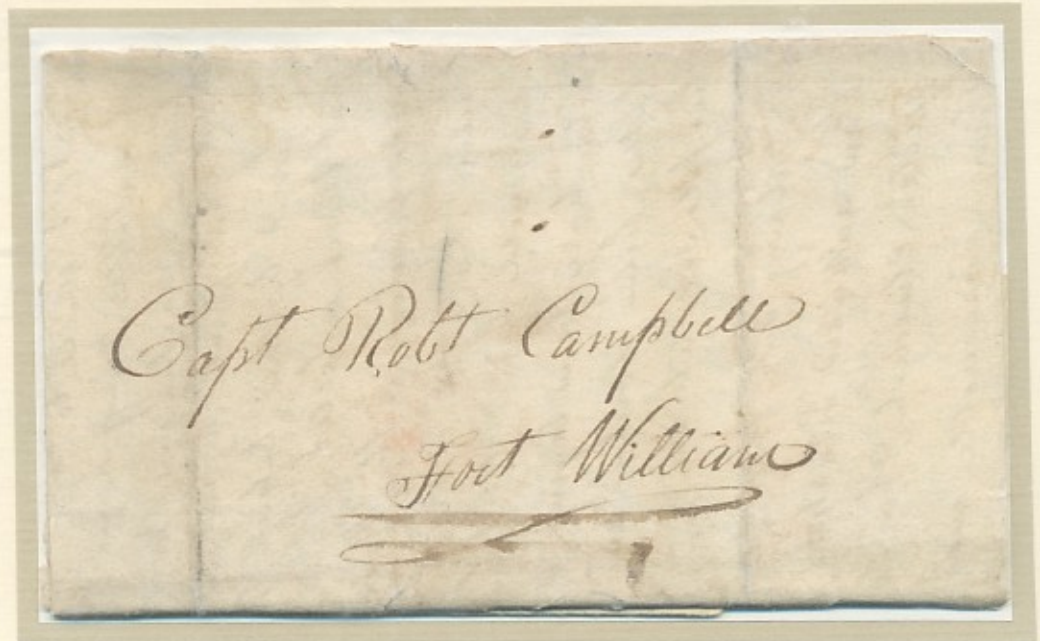 Capt Robt Campbell
Fort William